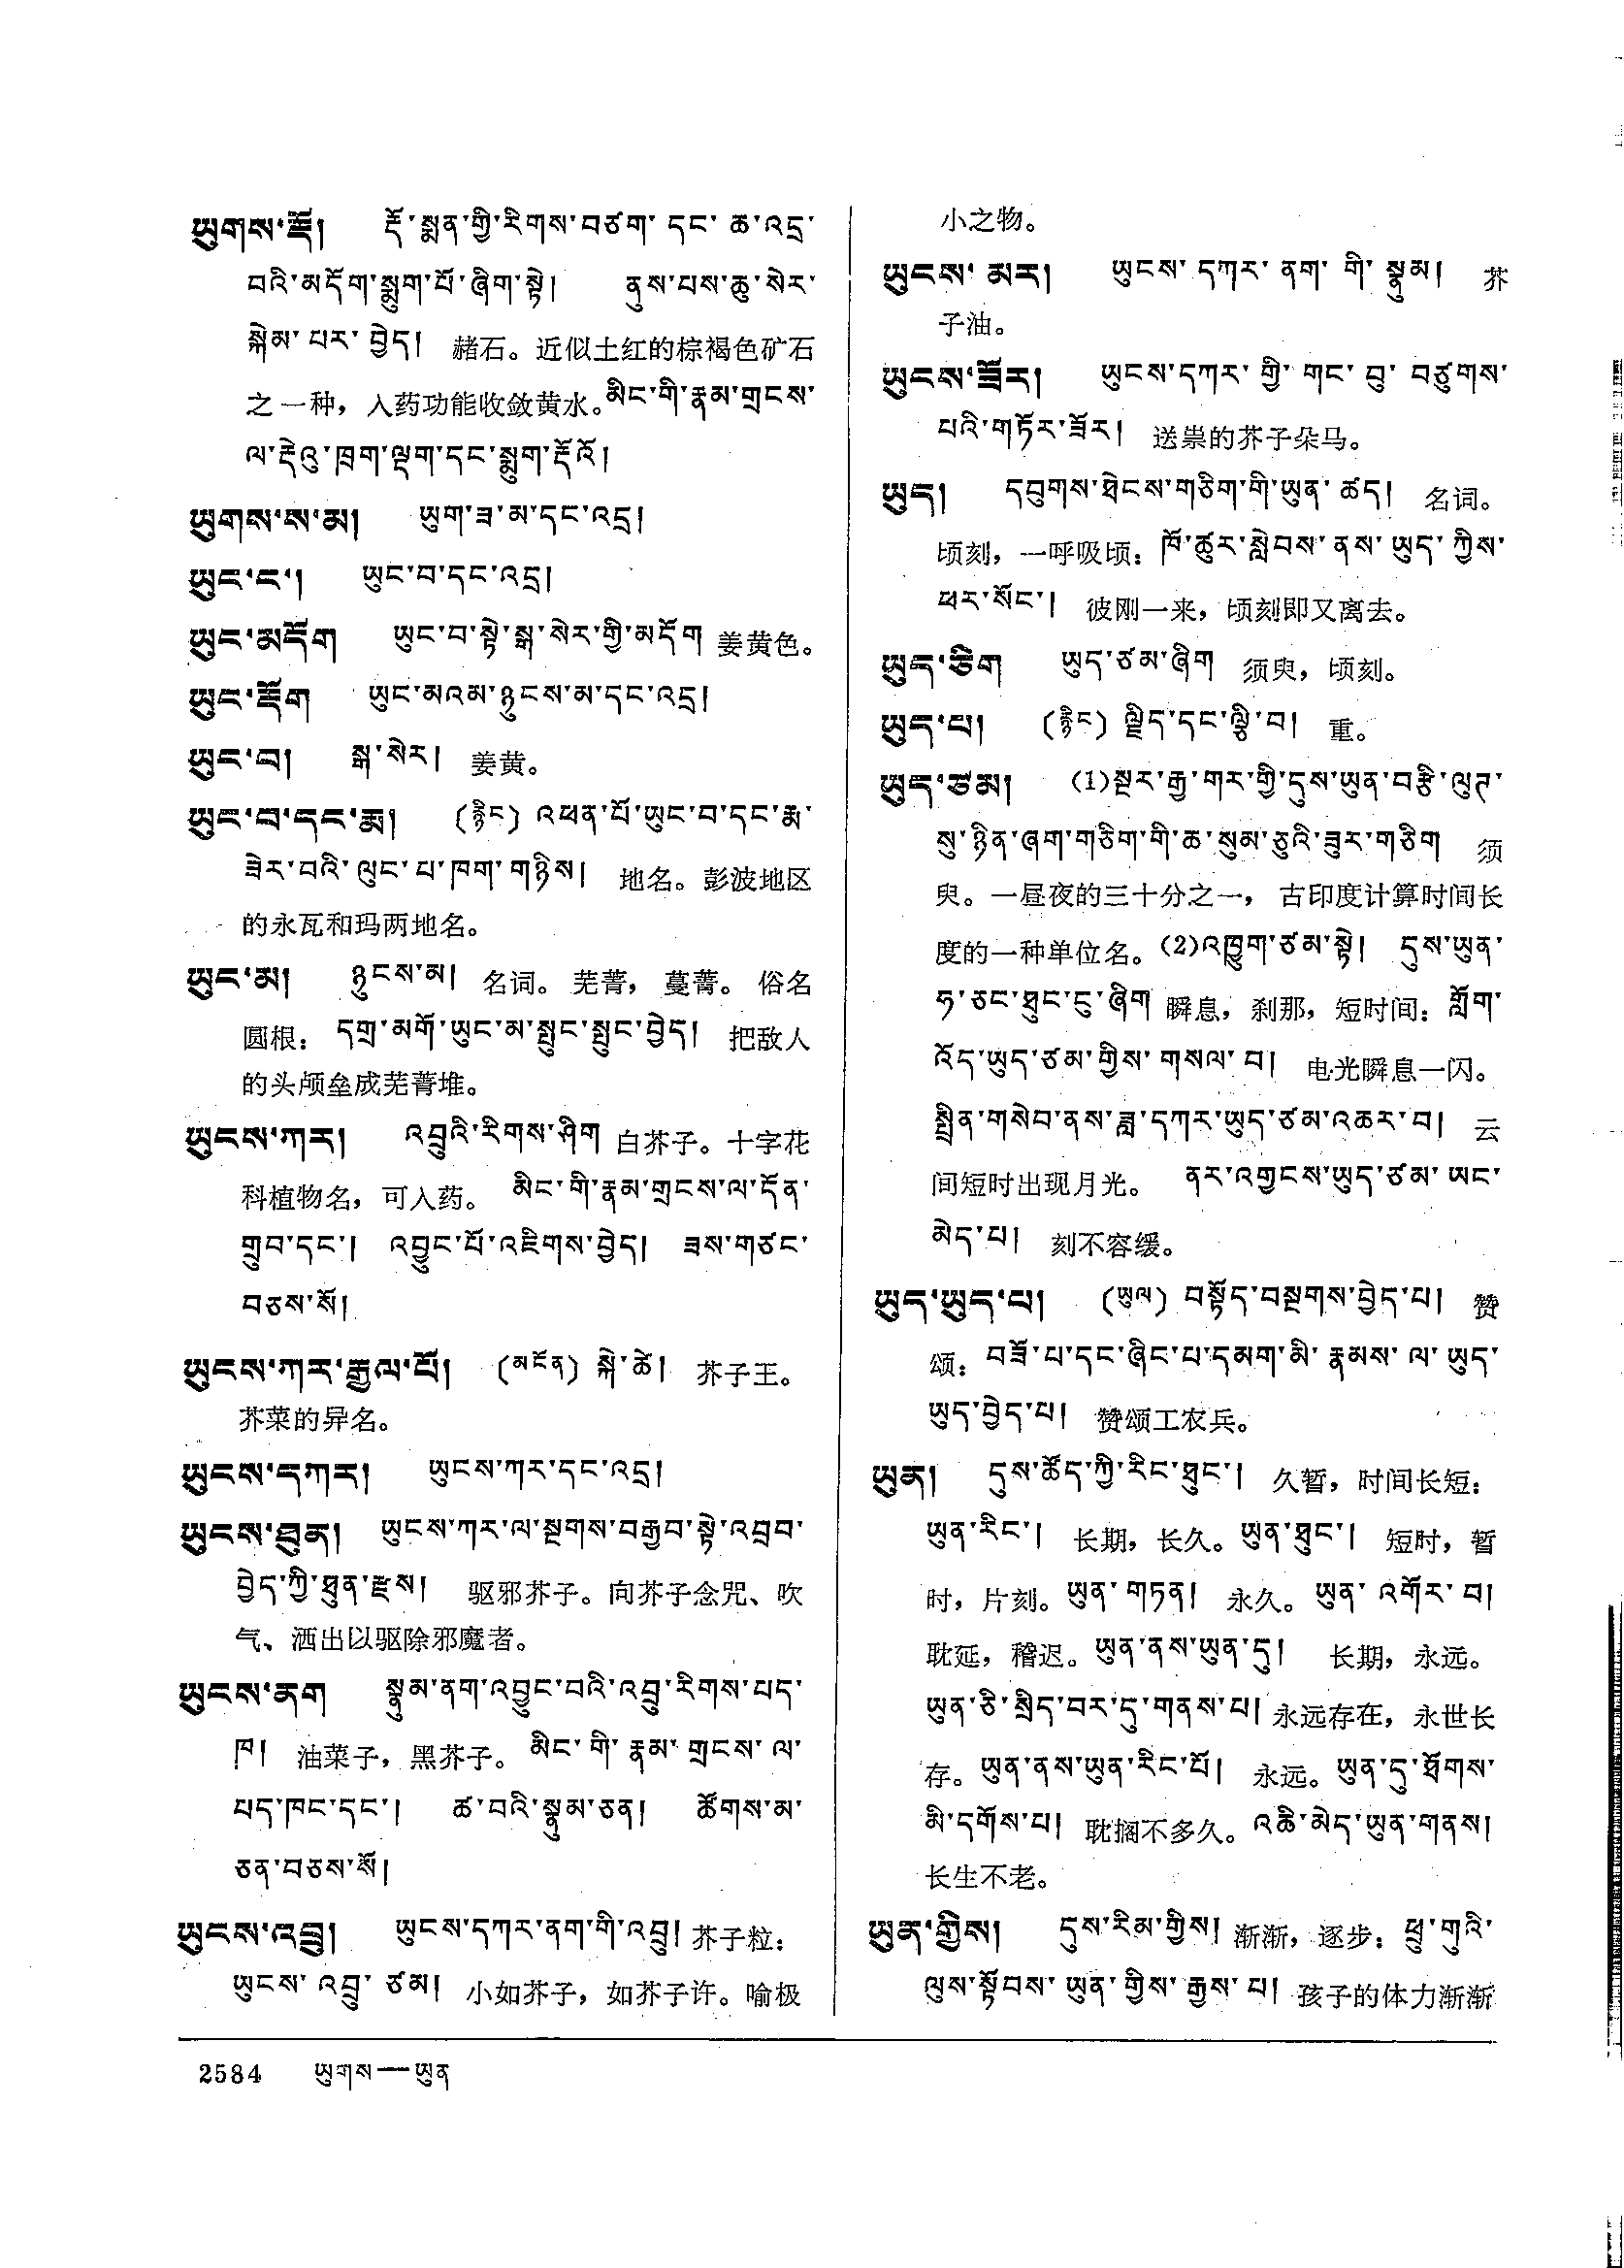 ཡུགས་རྡོ། རྡོ་སྨན་གྱི་རིགས་བཙག་ དང་ ཆ་འདྲ་
བའི་མདོག་སྨུག་པོ་ཞིག་སྟེ། ནུས་པས་ཆུ་སེར་
སྐེམ་ པར་ བྱེད། 赭石。近似土红的棕褐色矿石
之一种，入药功能收敛黄水。མིང་གི་རྣམ་གྲངས་
ལ་རྡེའུ་ཁྲག་ལྡག་དང་སྨུག་རྡོའོ།
ཡུགས་ས་མ། ཡུག་ཟ་མ་དང་འདྲ།
ཡུང་ང་། ཡུང་བ་དང་འདྲ།
ཡུང་མདོག ཡུང་བ་སྟེ་སྒ་སེར་གྱི་མདོག 姜黄色。
ཡུང་རྡོག ཡུང་མའམ་ཉུངས་མ་དང་འདྲ།
ཡུང་བ། སྒ་སེར། 姜黄。
ཡུང་བ་དང་རྨ། (རྙིང) འཕན་པོ་ཡུང་བ་དང་རྨ་
ཟེར་བའི་ལུང་པ་ཁག་གཉིས། 地名。彭波地区
的永瓦和玛两地名。
ཡུང་མ། ཉུངས་མ། 名词。芜菁，蔓菁。俗名
圆根：དགྲ་མགོ་ཡུང་མ་སྤུང་སྤུང་བྱེད། 把敌人
的头颅垒成芜菁堆。
ཡུངས་ཀར། འབྲུའི་རིགས་ཤིག 白芥子。十字花
科植物名，可入药。 མིང་གི་རྣམ་གྲངས་ལ་དོན་
གྲུབ་དང་། འབྱུང་པོ་འཇིགས་བྱེད། ཟས་གཙང་
བཅས་སོ།
ཡུངས་ཀར་རྒྱལ་པོ། (མངོན) སྐེ་ཚེ། 芥子王。
芥菜的异名。
ཡུངས་དཀར། ཡུངས་ཀར་དང་འདྲ།
ཡུངས་ཐུན། ཡུངས་ཀར་ལ་སྔགས་བརྒྱབ་སྟེ་འབྲབ་
བྱེད་ཀྱི་ཐུན་རྫས། 驱邪芥子。向芥子念咒、吹
气、洒出以驱除邪魔者。
ཡུངས་ནག སྣུམ་ནག་འབྱུང་བའི་འབྲུ་རིགས་པད་
ཁ། 油菜子，黑芥子。མིང་ གི་ རྣམ་ གྲངས་ ལ་
པད་ཁང་དང་། ཚ་བའི་སྣུམ་ཅན། ཚོགས་མ་
ཅན་བཅས་སོ།
ཡུངས་འབྲུ། ཡུངས་དཀར་ནག་གི་འབྲུ། 芥子粒：
ཡུངས་ འབྲུ་ ཙམ། 小如芥子，如芥子许。喻极
小之物。
ཡུངས་ མར། ཡུངས་ དཀར་ ནག་ གི་ སྣུམ། 芥
子油。
ཡུངས་ཟོར། ཡུངས་དཀར་ གྱི་ གང་ བུ་ བཙུགས་
པའི་གཏོར་ཟོར། 送祟的芥子朵马。
ཡུད། དབུགས་ཐེངས་གཅིག་གི་ཡུན་ ཚད། 名词。
顷刻，一呼吸顷：ཁོ་ཚུར་སླེབས་ ནས་ ཡུད་ ཀྱིས་
ཕར་སོང་། 彼刚一来，顷刻即又离去。
ཡུད་ཅིག ཡུད་ཙམ་ཞིག 须臾，顷刻。
ཡུད་པ། (རྙིང) ལྗིད་དང་ལྕི་བ། 重。
ཡུད་ཙམ། (1)སྔར་རྒྱ་གར་གྱི་དུས་ཡུན་བརྩི་ལུཊ་
སུ་ཉིན་ཞག་གཅིག་གི་ཆ་སུམ་ཅུའི་ཟུར་གཅིག 须
臾。一昼夜的三十分之一，古印度计算时间长
度的一种单位名。(2)འཁྱུག་ཙམ་སྟེ། དུས་ཡུན་
ཧ་ཅང་ཐུང་ངུ་ཞིག 瞬息，刹那，短时间：གློག་
འོད་ཡུད་ཙམ་གྱིས་ གསལ་ བ། 电光瞬息一闪。
སྤྲིན་གསེབ་ནས་ཟླ་དཀར་ཡུད་ཙམ་འཆར་བ། 云
间短时出现月光。 ནར་འགྱངས་ཡུད་ཙམ་ ཡང་
མེད་པ། 刻不容缓。
ཡུད་ཡུད་པ། (ཡུལ) བསྟོད་བསྔགས་བྱེད་པ། 赞
颂：བཟོ་པ་དང་ཞིང་པ་དམག་མི་ རྣམས་ ལ་ ཡུད་
ཡུད་བྱེད་པ། 赞颂工农兵。
ཡུན། དུས་ཚོད་ཀྱི་རིང་ཐུང་། 久暂，时间长短：
ཡུན་རིང་། 长期，长久。ཡུན་ཐུང་། 短时，暂
时，片刻。ཡུན་ གཏན། 永久。ཡུན་ འགོར་ བ།
耽延，稽迟。ཡུན་ནས་ཡུན་དུ། 长期，永远。
ཡུན་ཅི་སྲིད་བར་དུ་གནས་པ། 永远存在，永世长
存。ཡུན་ནས་ཡུན་རིང་པོ། 永远。ཡུན་དུ་ཐོགས་
མི་དགོས་པ། 耽搁不多久。འཆི་མེད་ཡུན་གནས།
长生不老。
ཡུན་གྱིས། དུས་རིམ་གྱིས། 渐渐，逐步：ཕྲུ་གུའི་
ལུས་སྟོབས་ ཡུན་ གྱིས་ རྒྱས་ པ། 孩子的体力渐渐
2584 ཡུགས—ཡུན